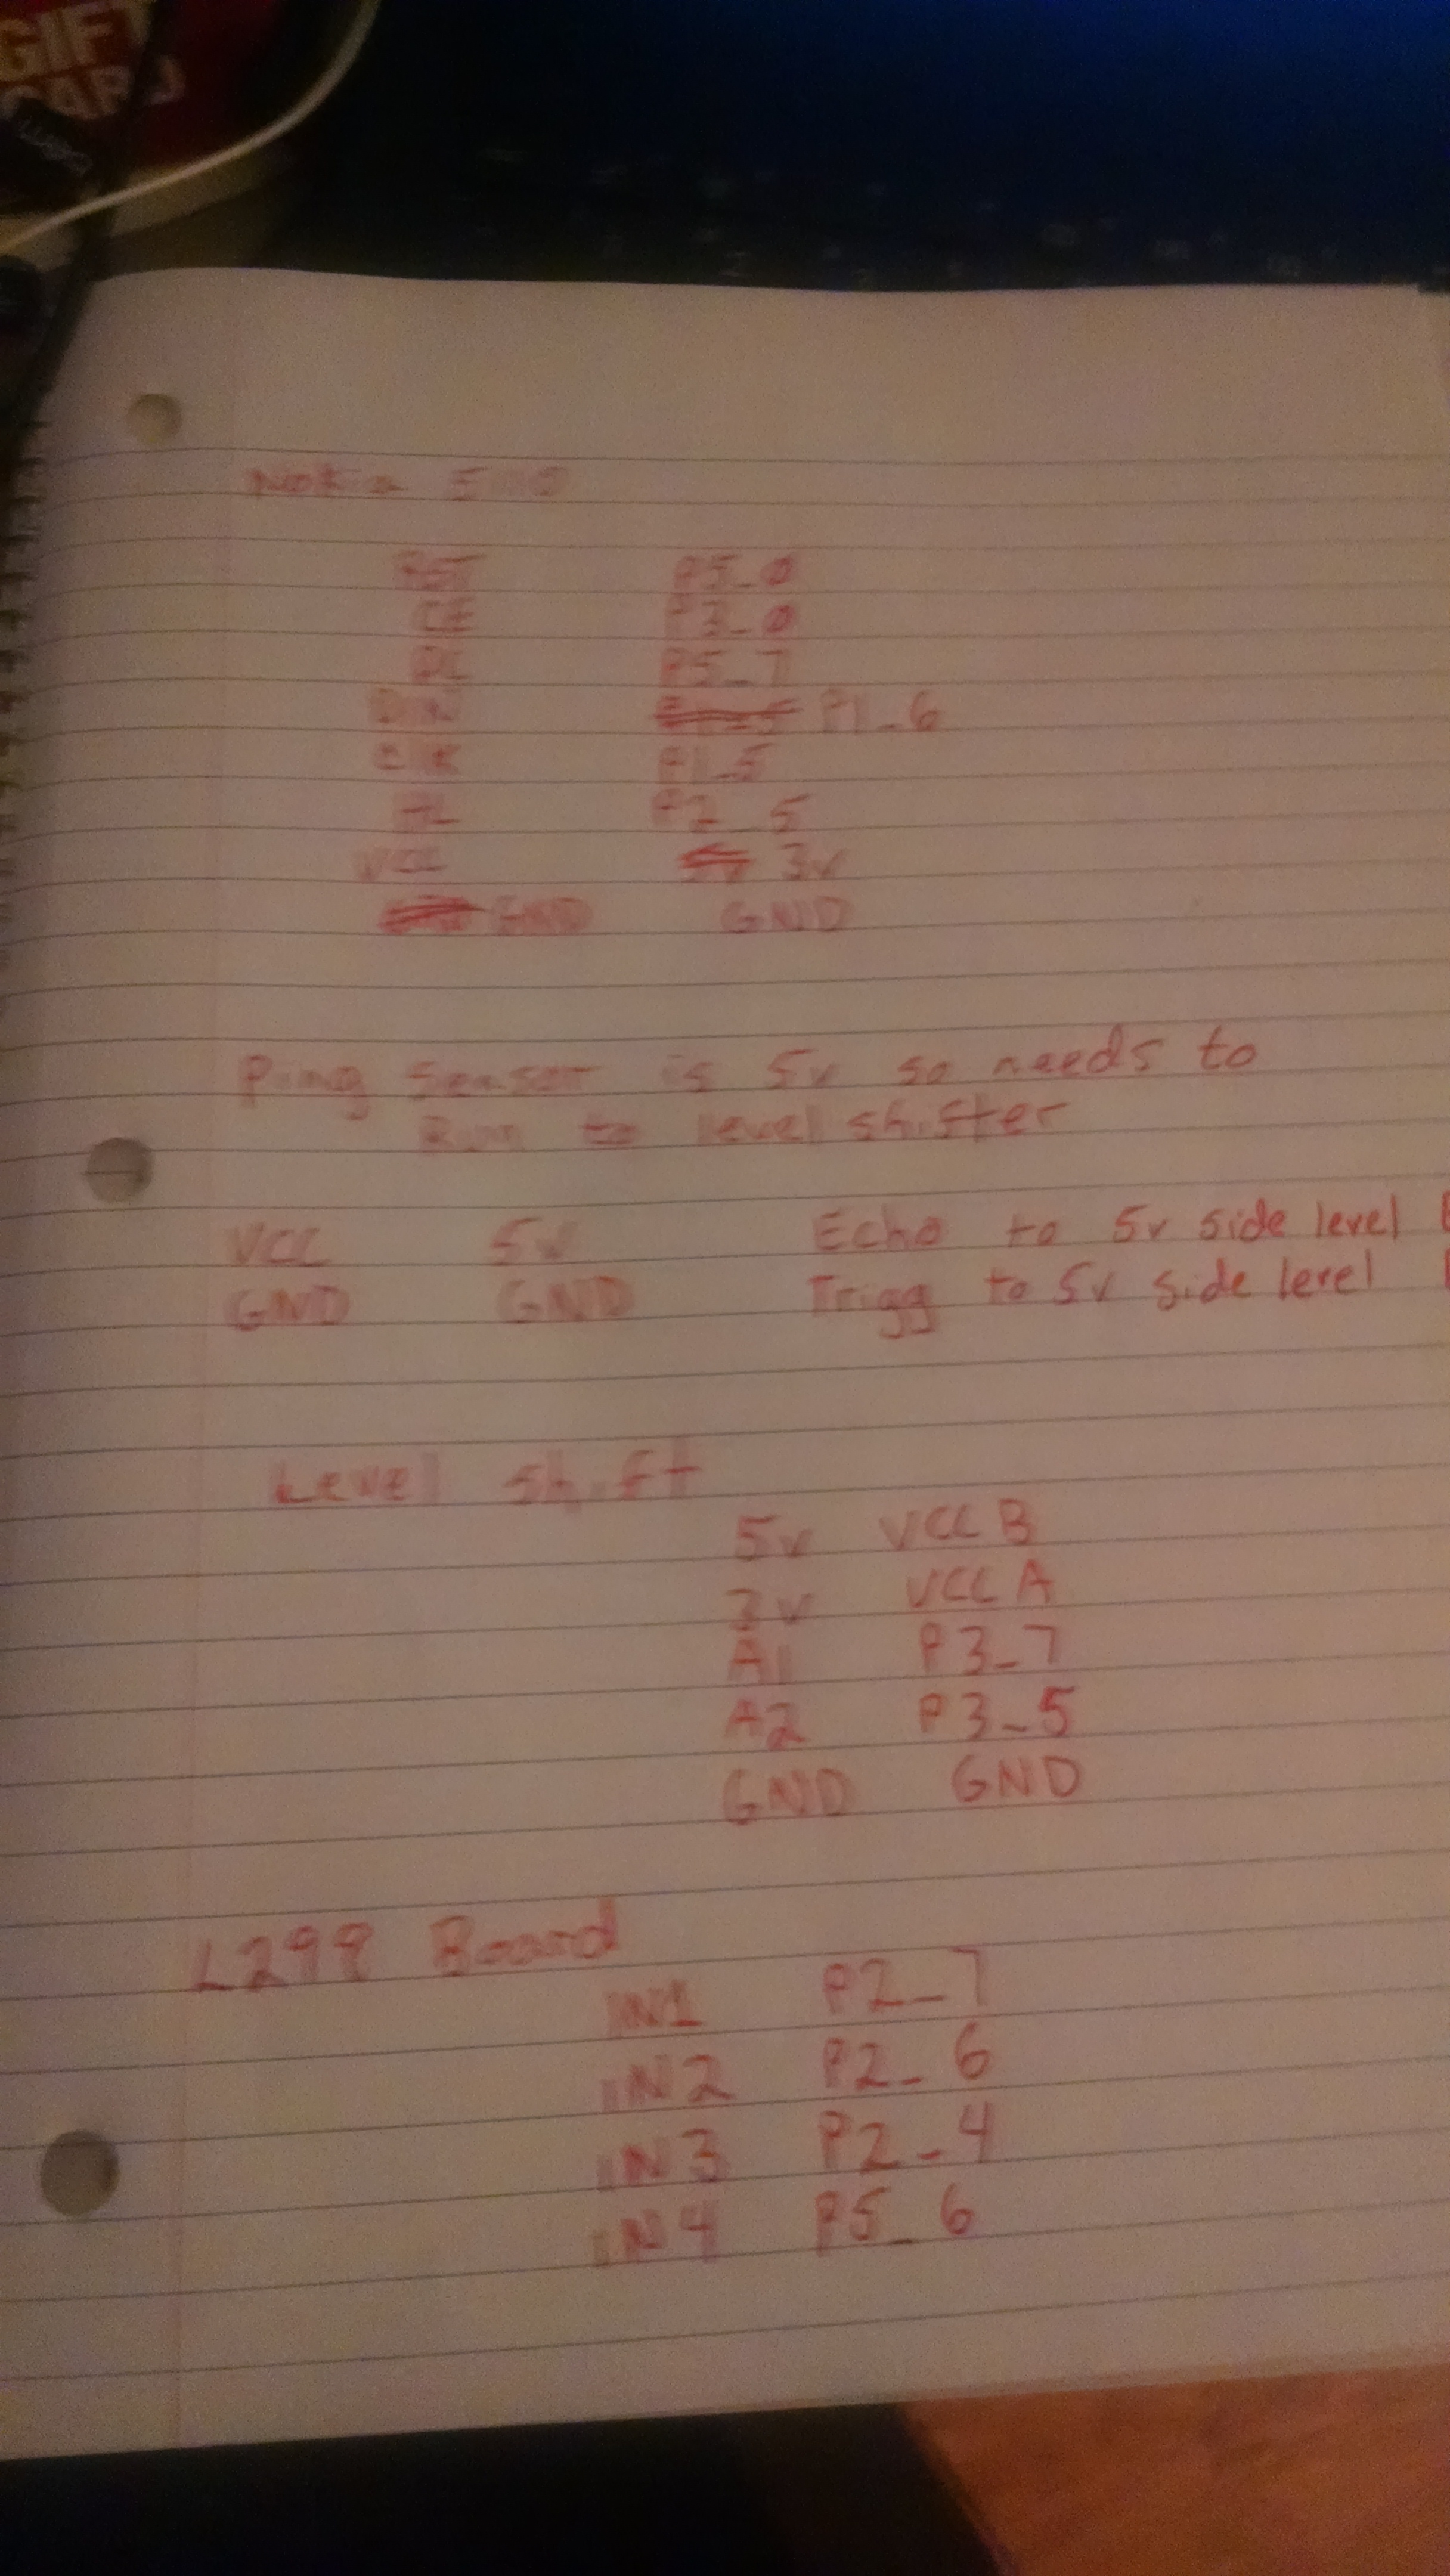 GIFT
CARD
Nokia 5110
RST P5_0
CE P3_0
DC P5_7
DIN P1_6
CLK P1_5
BL P2_5
VCC 3v
GND GND
Ping Sensor is 5v so needs to
Run to level shifter
VCC 5v Echo to 5v side level
GND GND Trigg to 5v side level
Level shift
5v VCC B
3v VCC A
A1 P3_7
A2 P3_5
GND GND
L298 Board
IN1 P2_7
IN2 P2_6
IN3 P2_4
IN4 P5_6